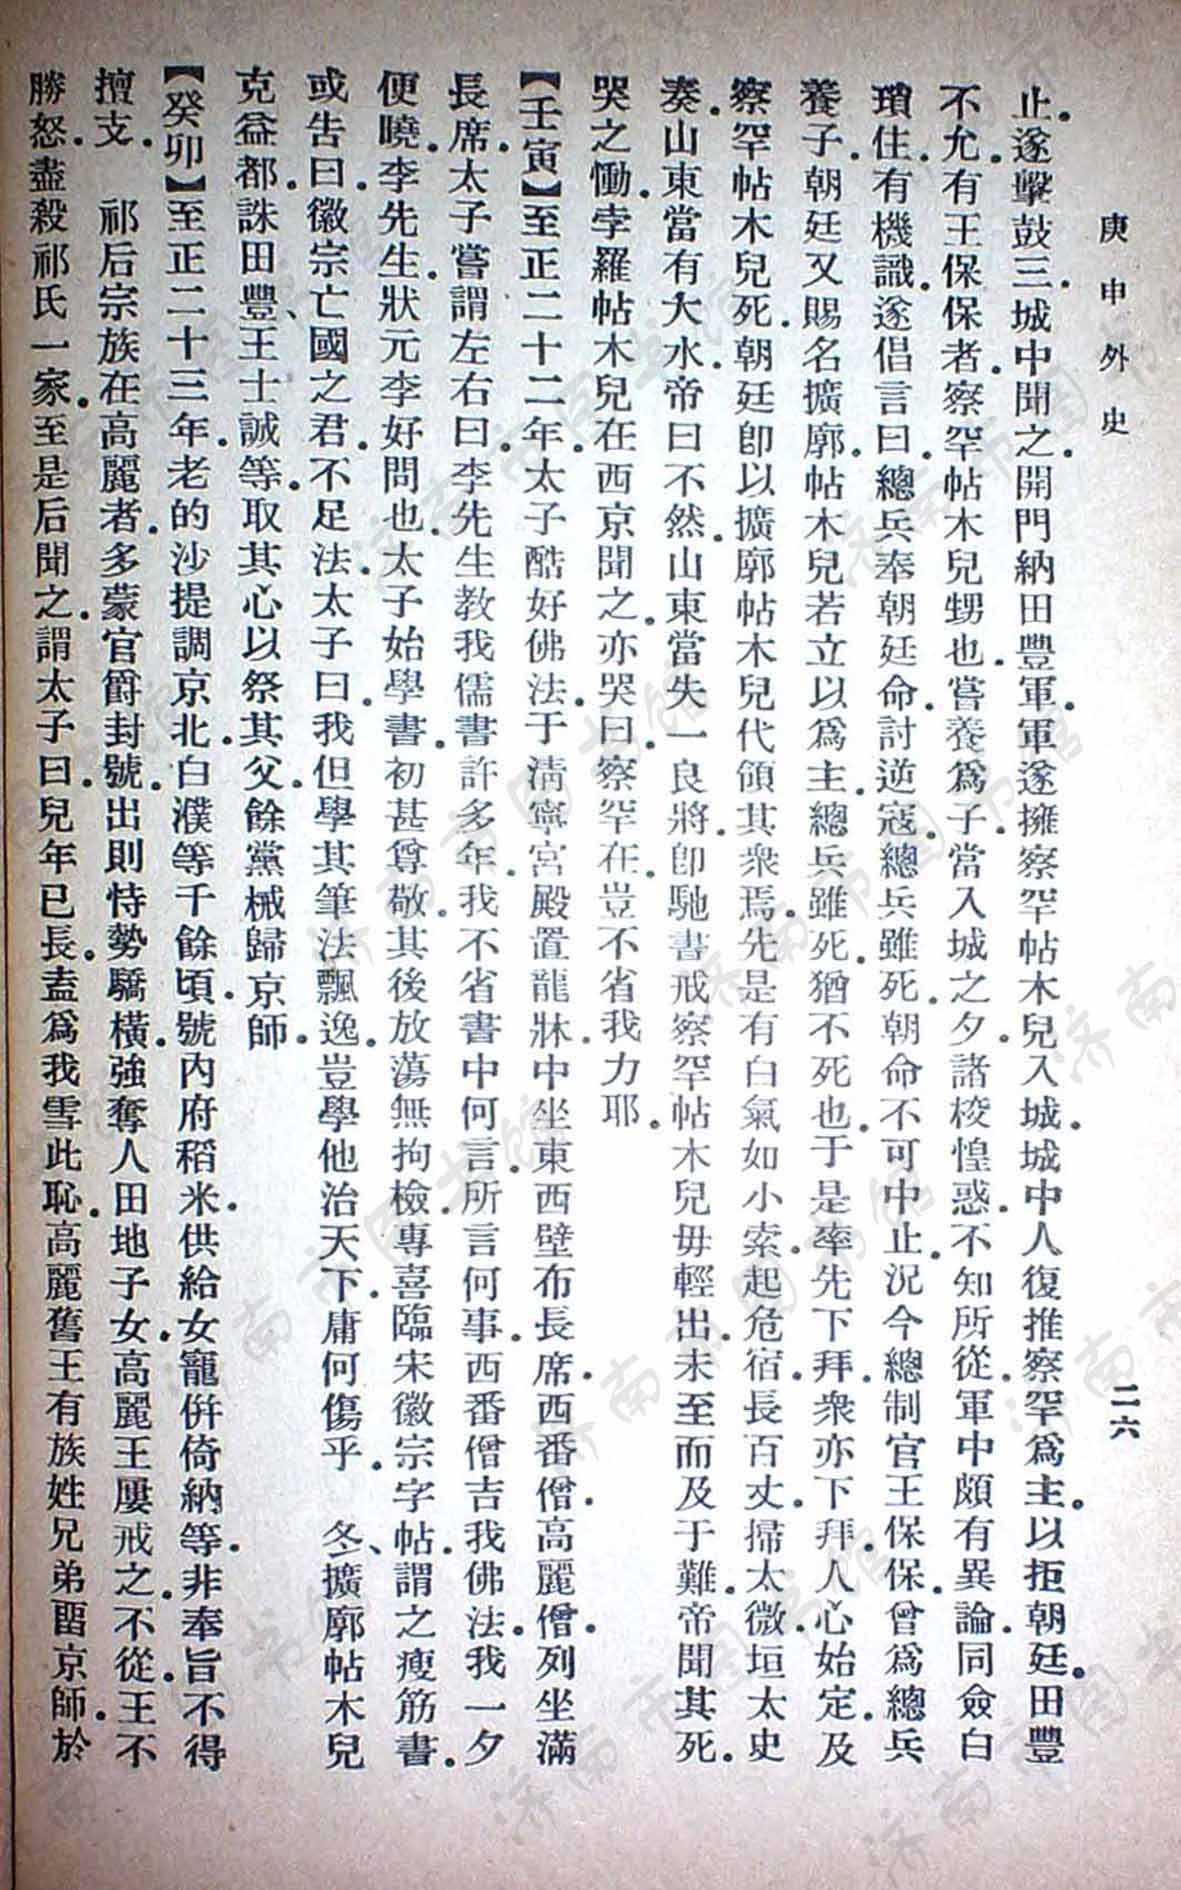 庚申外史
二六
止。遂擊鼓三。城中聞之。開門納田豐軍。軍遂擁察罕帖木兒入城。城中人復推察罕爲主。以拒朝廷。田豐
不允。有王保保者。察罕帖木兒甥也。嘗養爲子。當入城之夕。諸校惶惑。不知所從。軍中頗有異論。同僉白
瑣住。有機識。遂倡言曰。總兵奉朝廷命。討逆寇。總兵雖死。朝命不可中止。況今總制官王保保。曾爲總兵
養子。朝廷又賜名擴廓帖木兒。若立以爲主。總兵雖死。猶不死也。于是率先下拜。衆亦下拜。人心始定。及
察罕帖木兒死。朝廷卽以擴廓帖木兒代領其衆焉。先是有白氣如小索。起危宿。長百丈。掃太微垣。太史
奏。山東當有大水。帝曰不然。山東當失一良將。卽馳書戒察罕帖木兒毋輕出。未至而及于難。帝聞其死。
哭之慟。孛羅帖木兒在西京聞之。亦哭曰。察罕在。豈不省我力耶。
【壬寅】至正二十二年。太子酷好佛法。于清寧宮殿置龍牀。中坐。東西壁布長席。西番僧高麗僧。列坐滿
長席。太子嘗謂左右曰。李先生教我儒書許多年。我不省書中何言。所言何事。西番僧吉我佛法。我一夕
便曉。李先生。狀元李好問也。太子始學書。初甚尊敬。其後放蕩無拘檢。專喜臨宋徽宗字帖。謂之瘦筋書。
或告曰。徽宗亡國之君。不足法。太子曰。我但學其筆法飄逸。豈學他治天下。庸何傷乎。　冬、擴廓帖木兒
克益都。誅田豐、王士誠等。取其心以祭其父。餘黨械歸京師。
【癸卯】至正二十三年。老的沙提調京北白濮等千餘頃。號內府稻米。供給女寵倂倚納等。非奉旨不得
擅支。　祁后宗族在高麗者。多蒙官爵封號。出則恃勢驕橫。強奪人田地子女。高麗王屢戒之。不從。王不
勝怒。盡殺祁氏一家。至是后聞之。謂太子曰。兒年已長。盍爲我雪此恥。高麗舊王有族姓兄弟畱京師。於